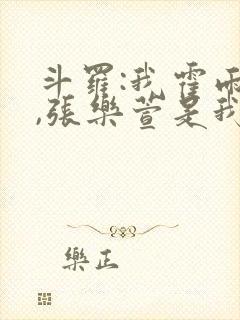 斗羅:我霍雨
,張樂萱是我
樂正